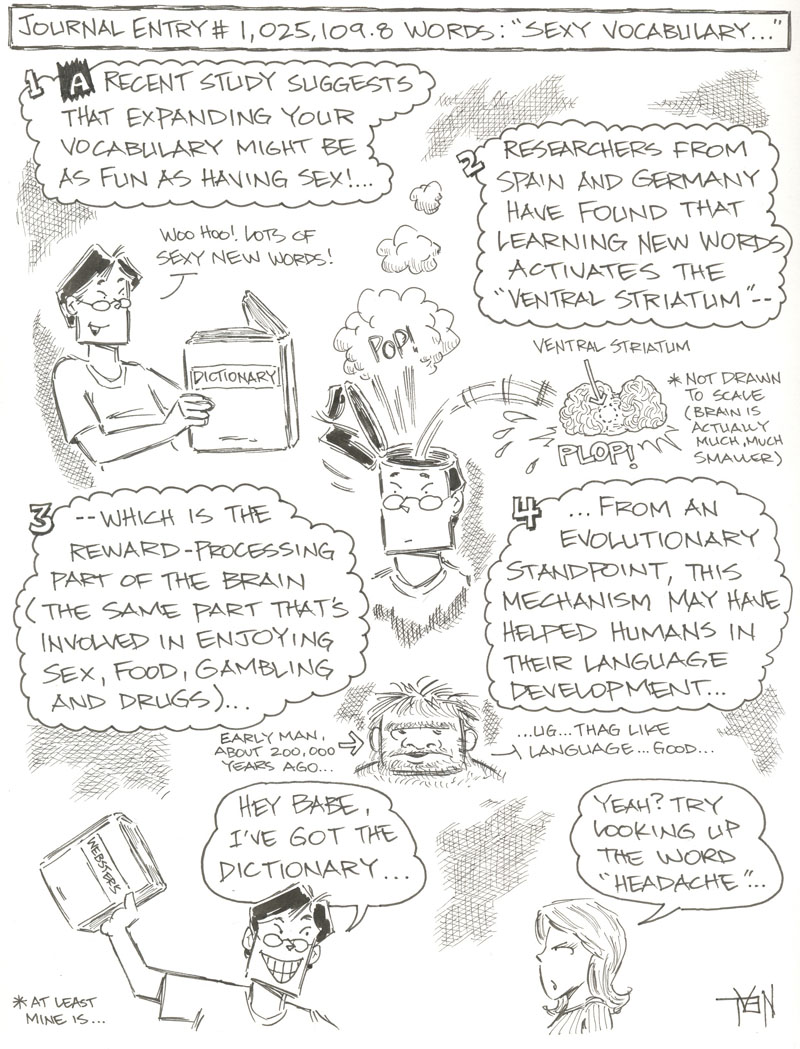 JOURNAL ENTRY # 1,025,109.8 WORDS: "SEXY VOCABULARY..."
1 A RECENT STUDY SUGGESTS
THAT EXPANDING YOUR
VOCABULARY MIGHT BE
AS FUN AS HAVING SEX!...
2 RESEARCHERS FROM
SPAIN AND GERMANY
HAVE FOUND THAT
LEARNING NEW WORDS
ACTIVATES THE
"VENTRAL STRIATUM"--
WOO HOO! LOTS OF
SEXY NEW WORDS!
DICTIONARY
POP!
VENTRAL STRIATUM
PLOP!
* NOT DRAWN
TO SCALE
(BRAIN IS
ACTUALLY
MUCH, MUCH
SMALLER)
3 --WHICH IS THE
REWARD-PROCESSING
PART OF THE BRAIN
(THE SAME PART THAT'S
INVOLVED IN ENJOYING
SEX, FOOD, GAMBLING
AND DRUGS)...
4 ...FROM AN
EVOLUTIONARY
STANDPOINT, THIS
MECHANISM MAY HAVE
HELPED HUMANS IN
THEIR LANGUAGE
DEVELOPMENT...
EARLY MAN,
ABOUT 200,000
YEARS AGO...
...UG...THAG LIKE
LANGUAGE...GOOD...
WEBSTERS
HEY BABE,
I'VE GOT THE
DICTIONARY...
YEAH? TRY
LOOKING UP
THE WORD
"HEADACHE"...
* AT LEAST
MINE IS...